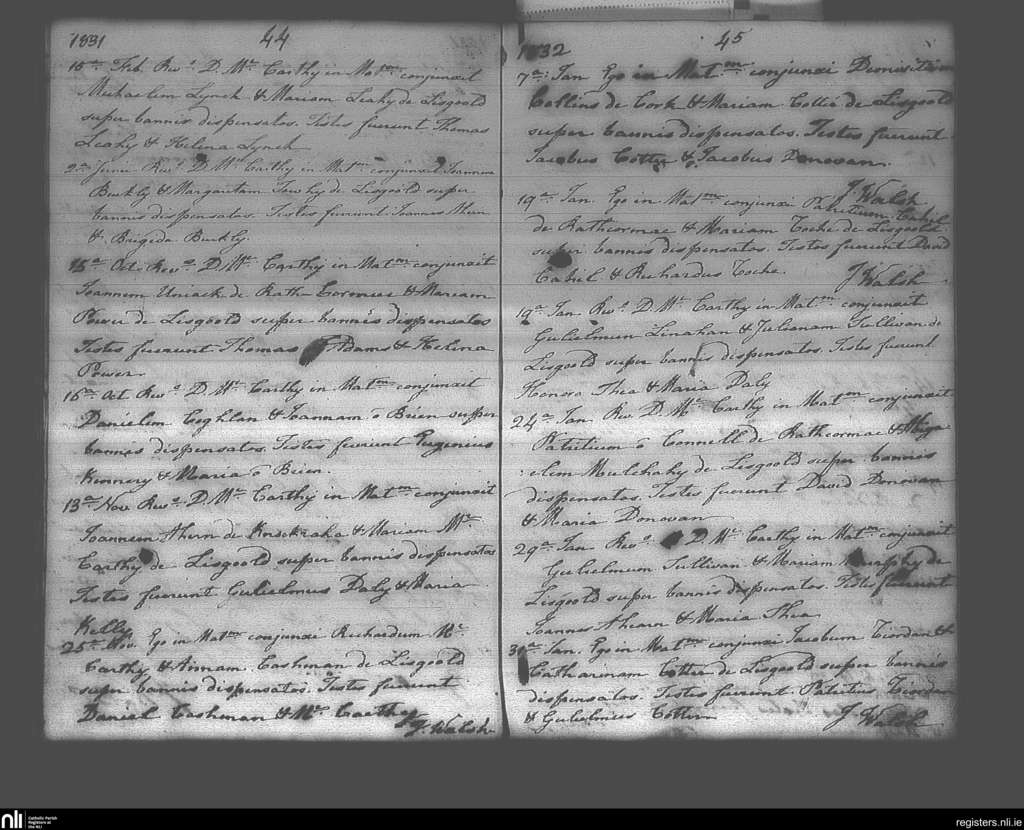 1831
44
15a Feb. Revs D. Mc Carthy in Matm conjunxit
Michaelem Lynch & Mariam Leahy de Lisgoold
super bannis dispensatos. Testes fuerunt Thomas
Leahy & Helina Lynch
2a Junii Revs D. Mc Carthy in Matm conjunxit Joannem
Buckly & Margaritam de Lisgoold super
bannis dispensatos. Testes fuerunt Joannes
& Brigida Buckly.
15a Oct. Revs D. Mc Carthy in Matm conjunxit
Joannem Uniack de Rath-Cormac & Mariam
Power de Lisgoold super bannis dispensatos
Testes fuerunt Thomas Adams & Helina
Power.
16a Oct Revs D. Mc Carthy in Matm conjunxit
Danielem Coghlan & Joannam o Brien super
bannis dispensatos. Testes fuerunt Eugenius
Kennery & Maria o Brien.
13a Nov. Revs D. Mc Carthy in Matm conjunxit
Joannem Ahern de Knockraha & Mariam Mc
Carthy de Lisgoold super bannis dispensatos
Testes fuerunt Gulielmus Daly & Maria
Kelly
25a Nov. Ego in Matm conjunxi Richardum Mc
Carthy & Annam Cashman de Lisgoold
super bannis dispensatos. Testes fuerunt
Daniel Cashman & Mc Carthy
J. Walsh
1832
45
7a Jan Ego in Matm conjunxi Dionisium
Collins de Cork & Mariam Cotter de Lisgoold
super bannis dispensatos. Testes fuerunt
Jacobus Cotter & Jacobus Donovan.
J. Walsh
19a Jan. Ego in Matm conjunxi Patritium Cahil
de Rathcormac & Mariam Roche de Lisgoold
super bannis dispensatos. Testes fuerunt David
Cahil & Richardus Roche.
J Walsh
19a Jan Revs D. Mc Carthy in Matm conjunxit
Gulielmum Linahan & Julianam Sullivan de
Lisgoold super bannis dispensatos. Testes fuerunt
Honora Shea & Maria Daly
24a Jan Rev D. Mc Carthy in Matm conjunxit
Patritium o Connell de Rathcormac & Abiga
elem Mulchahy de Lisgoold super bannis
dispensatos. Testes fuerunt David Donovan
& Maria Donovan
29a Jan Revs D. Mc Carthy in Matm conjunxit
Gulielmum Sullivan & Mariam Murphy de
Lisgoold super bannis dispensatos. Testes fuerunt
Joannes Ahearn & Maria Shea
31a Jan. Ego in Matm conjunxi Jacobum Riordan &
Catharinam Cotter de Lisgoold super bannis
dispensatos. Testes fuerunt Patritius Riordan
& Gulielmus Cotter
J Walsh
nli
Catholic Parish
Registers at
the NLI
registers.nli.ie